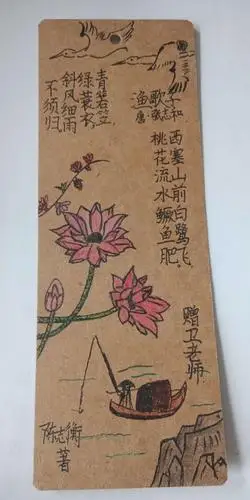 渔歌子
唐·张志和
西塞山前白鹭飞
桃花流水鳜鱼肥
青箬笠
绿蓑衣
斜风细雨
不须归
赠卫老师
陈志衡
著